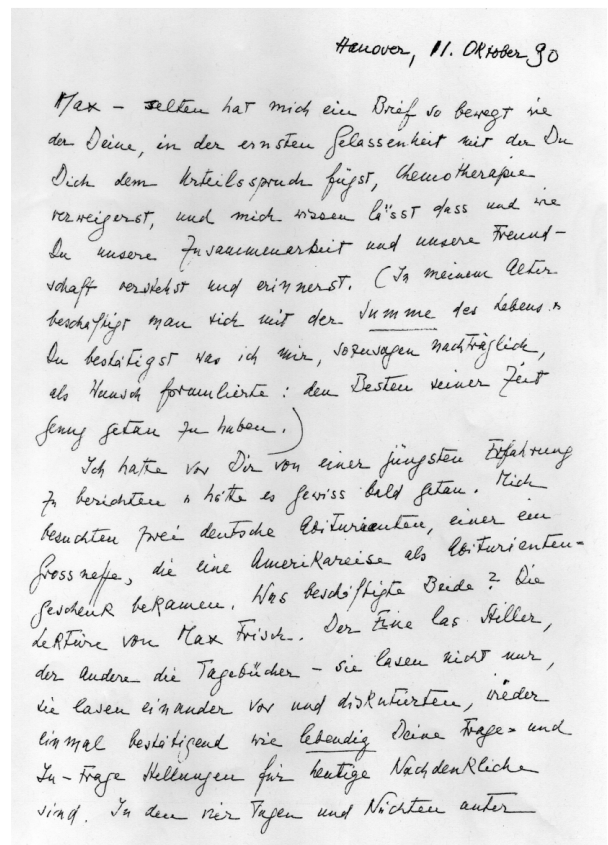 Hanover, 11. Oktober 90
Max – selten hat mich ein Brief so bewegt wie
der Deine, in der ernsten Gelassenheit mit der Du
Dich dem Urteilsspruch fügst, Chemotherapie
verweigerst, und mich wissen lässt dass und wie
Du unsere Zusammenarbeit und unsere Freund-
schaft verstehst und erinnerst. (In meinem Alter
beschäftigt man sich mit der Summe des Lebens.
Du bestätigst was ich mir, sozusagen nachträglich,
als Wunsch formulierte: den Besten seiner Zeit
genug getan zu haben.)
Ich hatte vor Dir von einer jüngsten Erfahrung
zu berichten u hätte es gewiss bald getan. Mich
besuchten zwei deutsche Abiturienten, einer ein
Grossneffe, die eine Amerikareise als Abiturienten-
geschenk bekamen. Was beschäftigte Beide? Die
Lektüre von Max Frisch. Der Eine las Stiller,
der andere die Tagebücher – sie lasen nicht nur,
sie lasen einander vor und diskutierten, wieder
einmal bestätigend wie lebendig Deine Frage- und
In-Frage Stellungen für heutige Nachdenkliche
sind. In den vier Tagen und Nächten unter